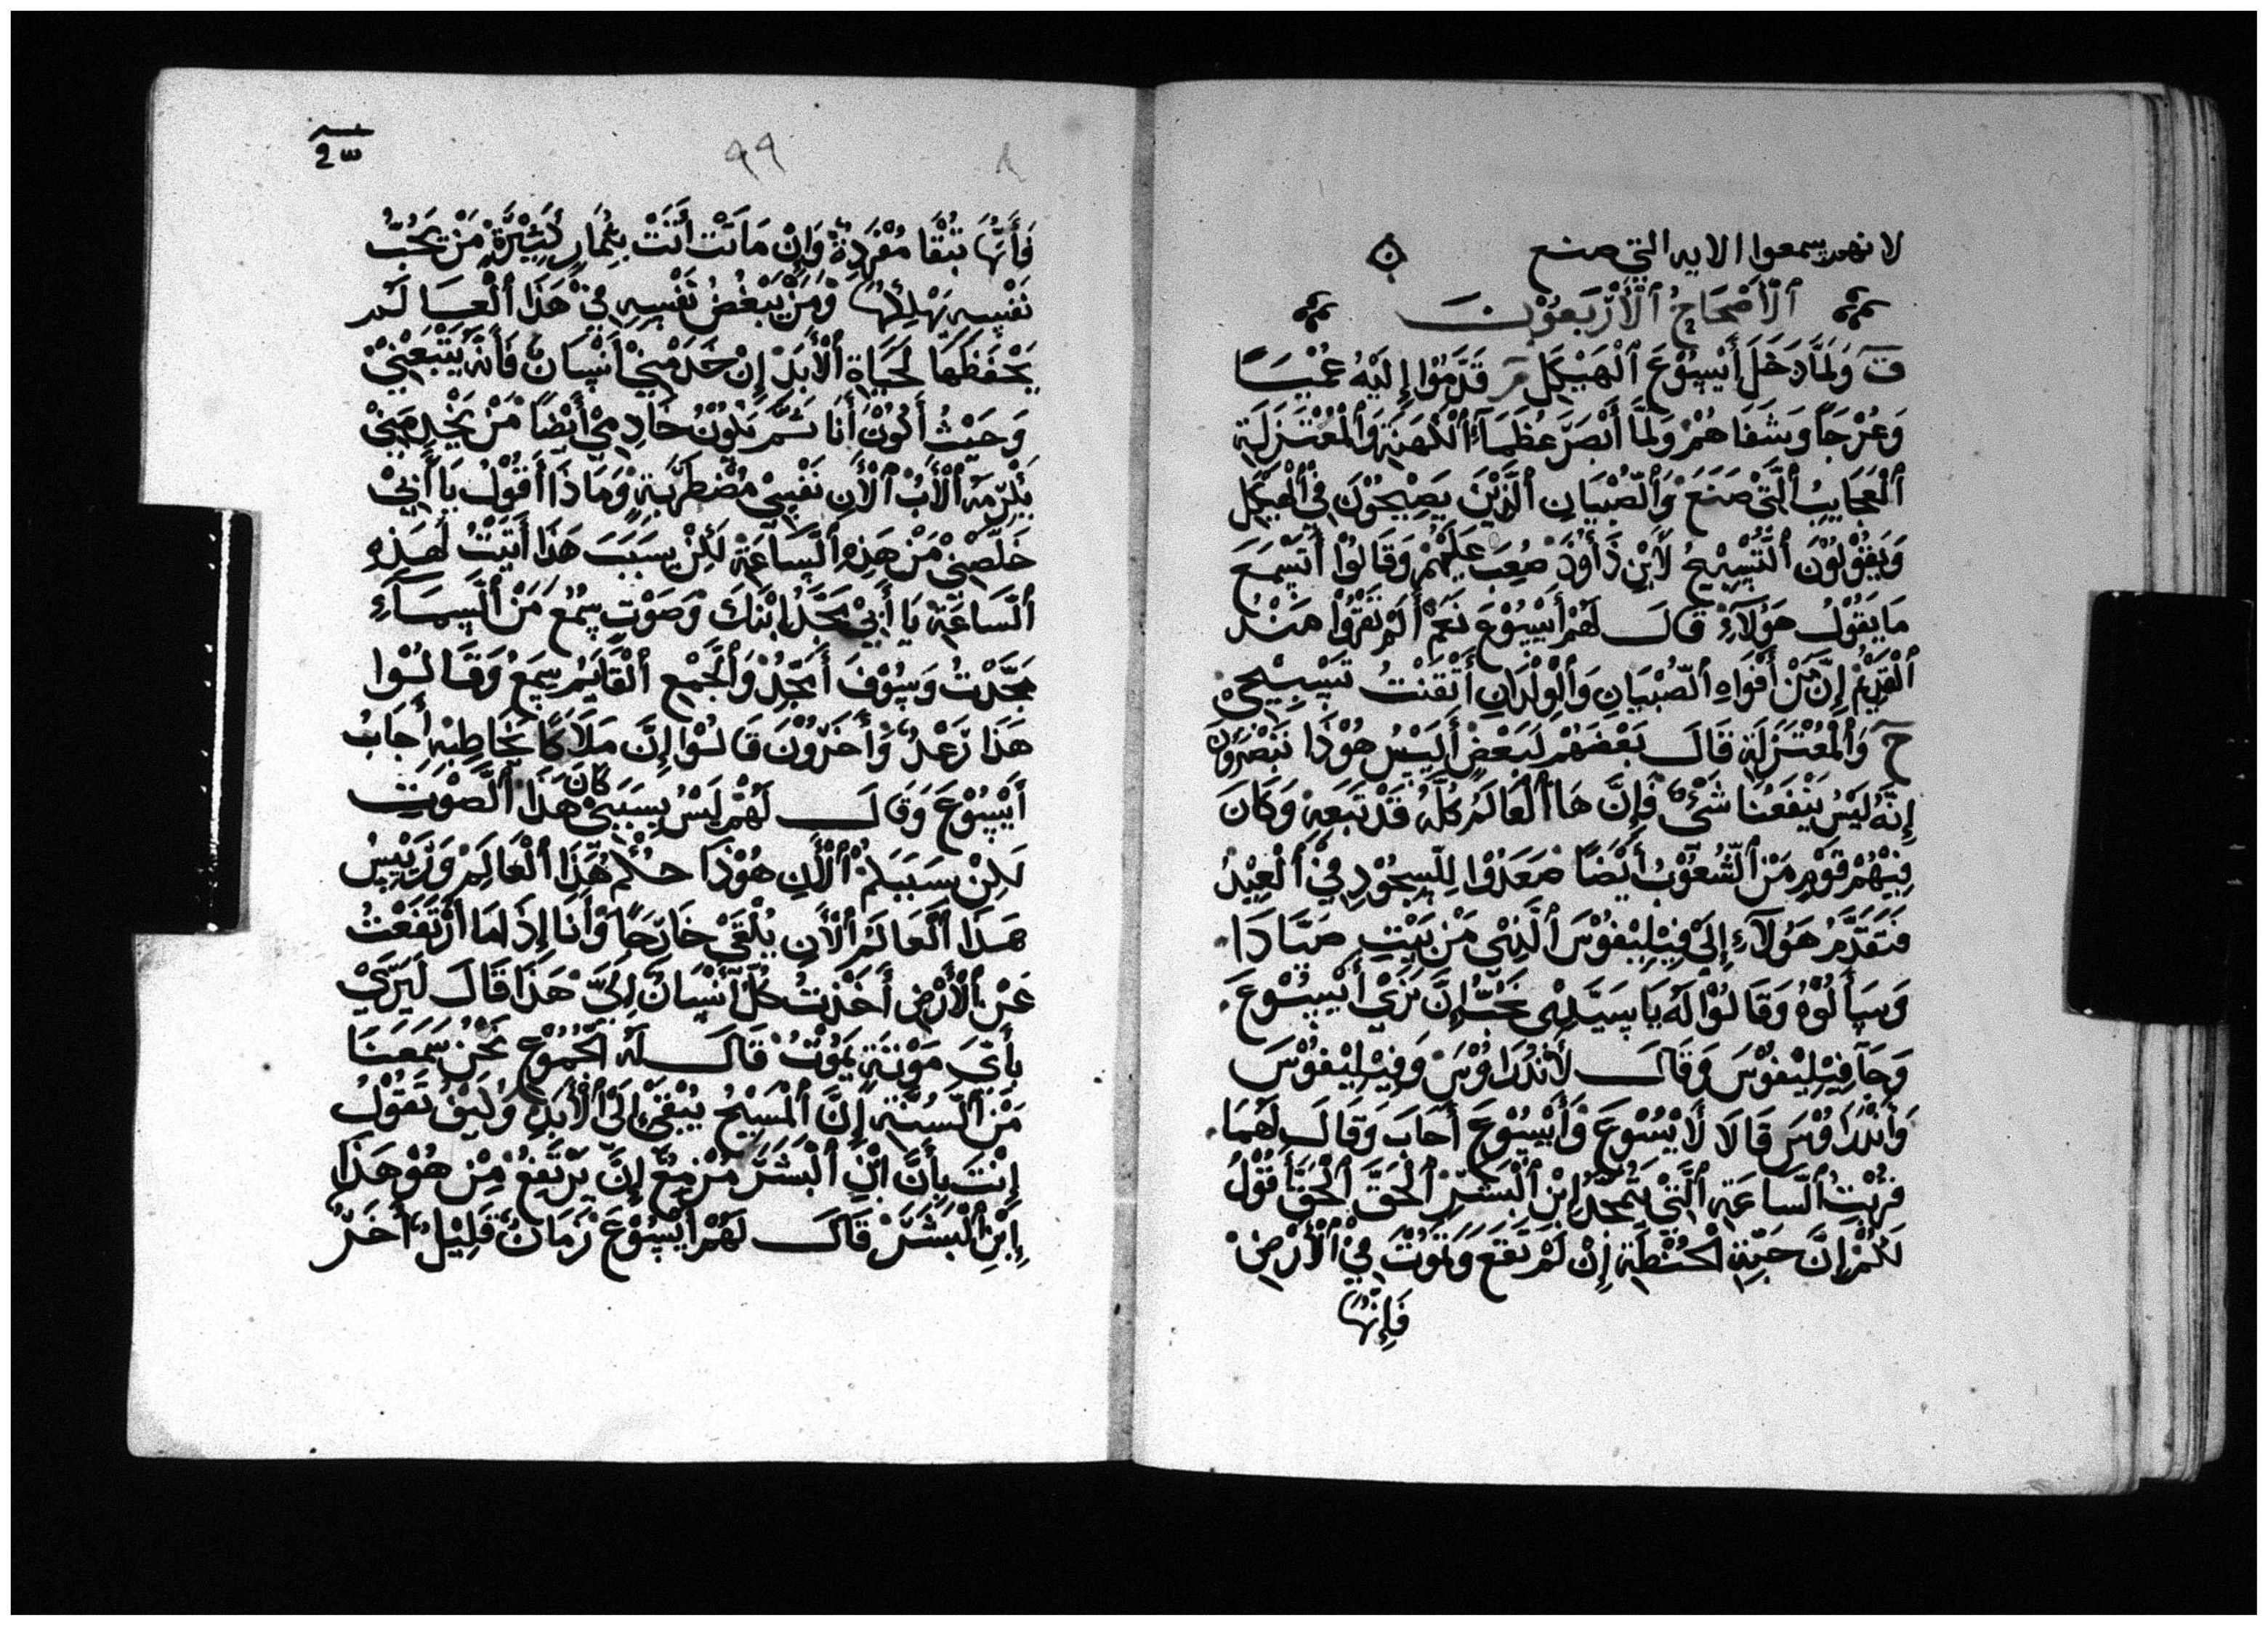 لانهم سمعوا الايه التي صنع
ٱلْأَصْحَاحُ ٱلْأَرْبَعُوْنَ
ق وَلَمَّا دَخَلَ أَيْسُوْعَ ٱلْهَيْكَلِ مر قَدَّمُوْا إِلَيْهُ عُمْيَا
وَعُرْجَاً وَشَفَاهُمْ وَلَمَّا أَبْصَرَ عُظَمَآءُ ٱلْكَهَنَةِ وَٱلْمُعْتَزَلَةِ
ٱلْعَجَايِبُ ٱلَّتِيْ صَنَعَ وَٱلصُّبْيَانِ ٱلَّذِيْنَ يَصِيْحُوْنَ فِيْ ٱلْهَيْكَلِ
وَيَقُوْلُوْنَ ٱلتَّسْبِيْحُ لَأبْنِ دَأوُدَ صُعِبَ عَلَيْهُمْ وَقَالُوْا أَتَسْمَعَ
مَا يَقُوْلُ هَوُلَآءِ قَالَ لَهُمْ أَيْسُوْعَ نَعَمْ أَلَمْ تَقْرَوْا مَنْدُ
ٱلْقَدِيْمُ إِنَّ مَنْ أَفْوَاهِ ٱلصُّبْيَانِ وَٱلْوِلْدَانِ أَتْقَنْتُ تَسْبِيْحِيْ
ح وَٱلْمُعْتَزَلَةِ قَالَ بَعْضَهُمْ لَبَعْضٍ أَلَيْسُ هُوْذَا تَنْصُرُوْنَ
إِنَّهُ لَيْسُ يَنْفَعُنَا شَيْءٌ فَإِنَّ هَا ٱلْعَالَمْ كُلَّهُ قَدْ تَبَعِهْ وَكَانَ
فِيْهُمْ قَوْمٍ مَنْ ٱلشُّعُوْبُ أَيْضَاً صَعَدُوْا لِلسِّجُوْدِ فِيْ ٱلْعِيْدُ
فَتَقَدَّمُ هَوُلَآءِ إِلَىْ فِيْلِيْفُوْسَ ٱلَّذِيْ مَنْ بَيْتِ صَيَّادَا
وَسَأَلُوْهُ وَقَالُوْا لَهُ يَا سَيِّدِيْ نُحَبُّ إِنَّ نَرَىْ أَيْسُوْعَ
وَجَآ فِيْلِيْفُوْسَ وَقَالَ لَأنْدُرَاوُسَ وَفِيْلِيْفُوْسَ
وَأنْدُرَاوُسَ قَالَا لَأيْسُوْعَ وَأَيْسُوْعَ أَجَابَ وَقَالَ لَهُمَا
قَرُبْتُ ٱلسَّاعَةِ ٱلَّتِيْ يَتَمَجَّدُ إِبْنِ ٱلْبَشَرِ ٱلْحَقَّ ٱلْحَقَّ أَقُوْلُ
لَكُمْ إِنَّ حَبَّةِ ٱلْحُنْطَةِ إِنْ لَمْ تَقَعَ وَتَمُوْتَ فِيْ ٱلْأَرْضِ
فَإِنَّهَا
٩٩
فَأَنَّهَا تَبْقَا مُفْرَدِةٌ وَإِنْ مَاتَتْ أَتَتْ بِثِمَارٍ كَثِيْرَةٍ مَنْ يَحُبُّ
نَفْسِهِ يَهْلِكُهَا وَمَنْ يَبْغُضُ نَفْسِهِ فِيْ هَذَا ٱلْعَالَمْ
يَحْفَظَهَا لَحَيَاةِ ٱلْأَبَدْ إِنْ خَدَمْنِيْ أَنْسَانٌ فَأنَّهُ يَتْبَعْنِيْ
وَحَيْثُ أَكُوْنْ أَنَا ثَمَّ يَكُوْنُ خَادِمِيْ أَيْضَاً مَنْ يَخْدِمَنِيْ
يُكَرِّمَهُ ٱلْأَبْ ٱلْأَنِ نَفْسِيْ مُضْطَرِبَةٍ وَمَاذَا أَقُوْلُ يَا أَبِيْ
خَلِّصْنِيْ مَنْ هَذِهِ ٱلسَّاعَةِ لَكِنْ بِسَبَبَ هَذَا أَتَيْتُ لَهَذِهِ
ٱلسَّاعَةِ يَا أَبِيْ مَجَّدْ إِبْنَكَ وَصَوْتٍ سِمُعَ مَنْ ٱلسَّمَآءِ
مَجَّدْتُ وَسَوْفَ أَمَجِّدُ وَٱلْجَمْعِ ٱلْقَايِمْ سِمَعُ وَقَالُوْا
هَذَا رَعْدٌ وَأَخَرُوْنَ قَالُوْا إِنَّ مَلَاكَاً يُخَاطِبِهْ أَجَابُ
أَيْسُوْعَ وَقَالَ لَهُمْ لَيْسُ بِسَبَبِيْ كَانَ هَذَا ٱلصَّوْتِ
لَكِنْ بِسَبَبَكُمْ ٱلْأَنِ هُوْذَا حُكْمُ هَذَا ٱلْعَالِمْ وَرَيِّيْسُ
هَذَا ٱلْعَالَمْ ٱلْأَنِ يُلْقَىْ خَارِجَاً وَأَنَا إِذَا مَا ٱرْتَفَعْتُ
عَنْ ٱلْأَرْضِ أَخَذْتُ كُلَّ أَنْسَانٌ إِلَيَّ هَذَا قَالَ لَيَرَىْ
بِأَيَّ مَوْتَةٍ يَمُوْتُ قَالَ لَهُ ٱلْجُمُوْعِ نَحْنُ سَمَعَنَا
مَنْ ٱلسُّنَّةِ إِنَّ ٱلْمَسِيْحُ يُبْقَىْ إِلَىْ ٱلْأَبَدِ وَكَيْفَ تَقُوْلُ
إِنْتَ بِأَنَّ ابْنِ ٱلْبَشَرَ مُزْمِعٌ إِنَّ يَرْتَفِعُ مِنْ هُوْ هَذَا
إِبْنِ ٱلْبَشَرَ قَالَ لَهُمْ أَيْسُوْعَ زَمَانٌ قَلِيْلٌ أَخَرُ